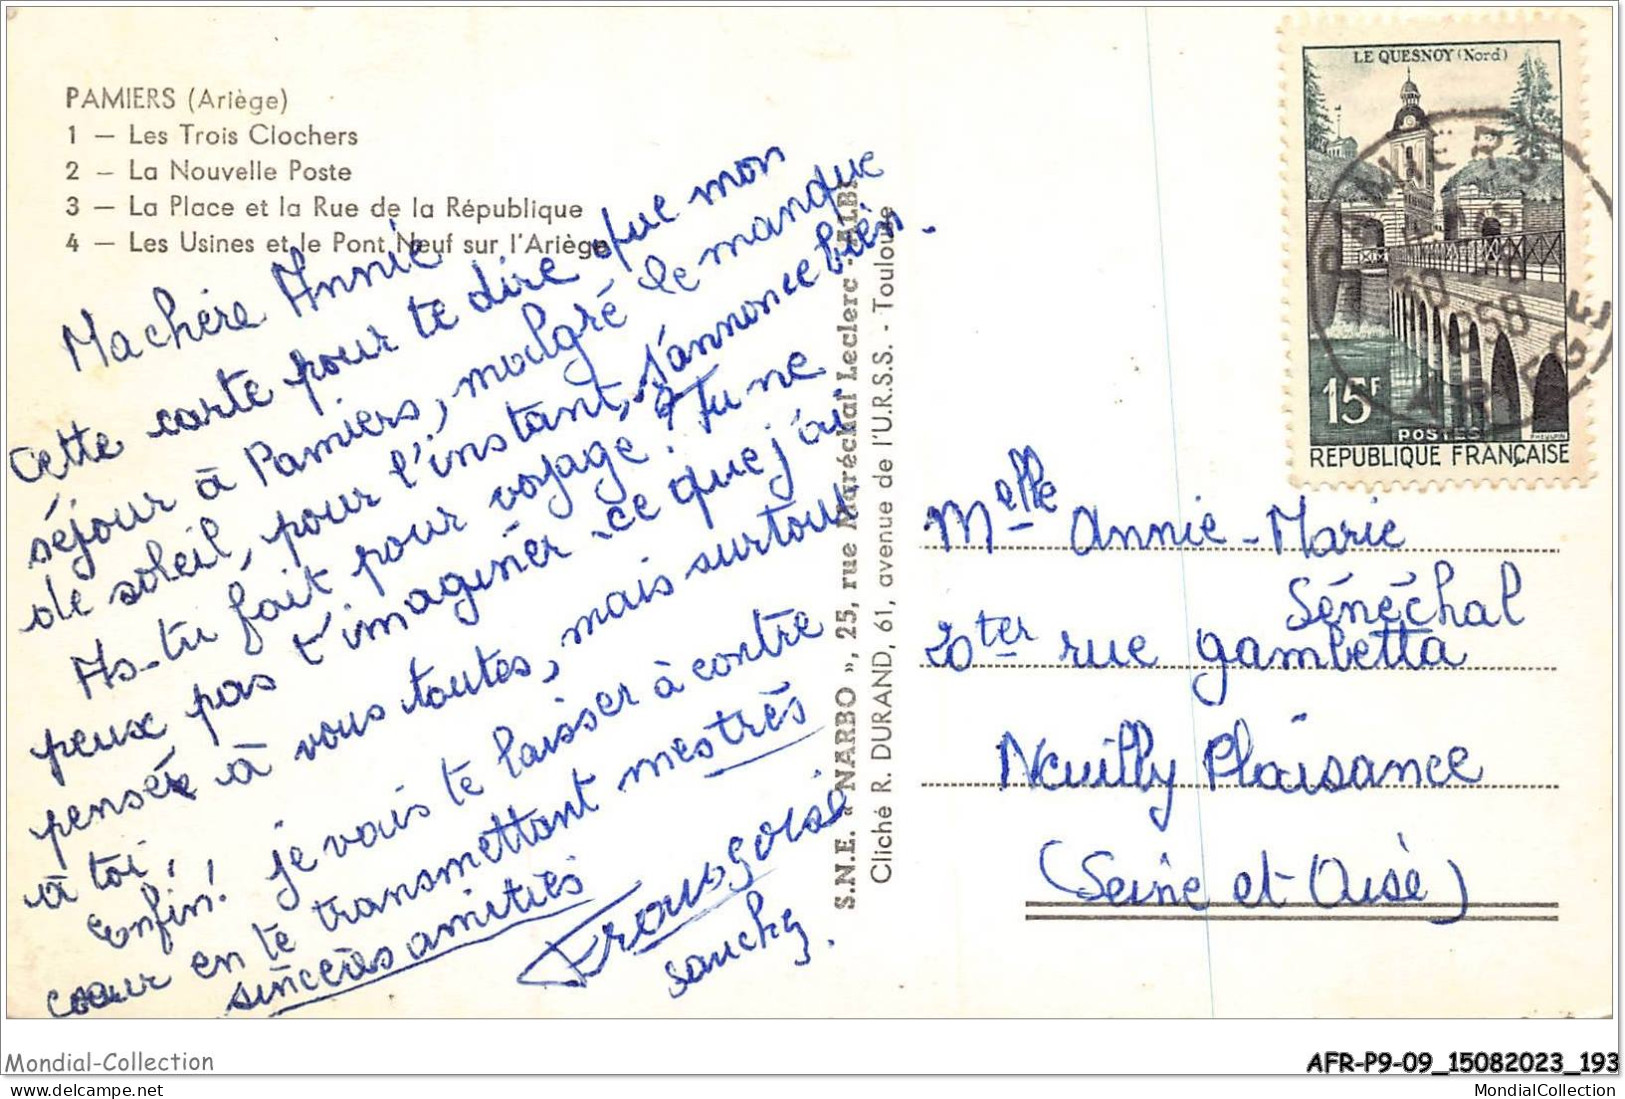 PAMIERS (Ariège)
1 — Les Trois Clochers
2 — La Nouvelle Poste
3 — La Place et la Rue de la République
4 — Les Usines et le Pont Neuf sur l'Ariège
Ma chère Annie
Cette carte pour te dire que mon
séjour à Pamiers, malgré le manque
de soleil, pour l'instant, s'annonce bien.
As-tu fait pour voyage? Tu ne
peux pas t'imaginer ce que j'ai
pensée à vous toutes, mais surtout
à toi,
Enfin! je vais te laisser à contre
cœur en te transmettant mes très
sincères amitiés
Françoise
S.N.E. « NARBO », 25, rue Maréchal Leclerc - ALBI
Cliché R. DURAND, 61, avenue de l'U.R.S.S. - Toulouse
LE QUESNOY (Nord)
PAMIERS
1958
ARIEGE
15F
POSTES
REPUBLIQUE FRANÇAISE
Melle Annie-Marie
Sénéchal
20ter rue Gambetta
Neuilly Plaisance
(Seine et Oise)
Mondial-Collection
AFR-P9-09_15082023_193
https://www.delcampe.net
MondialCollection